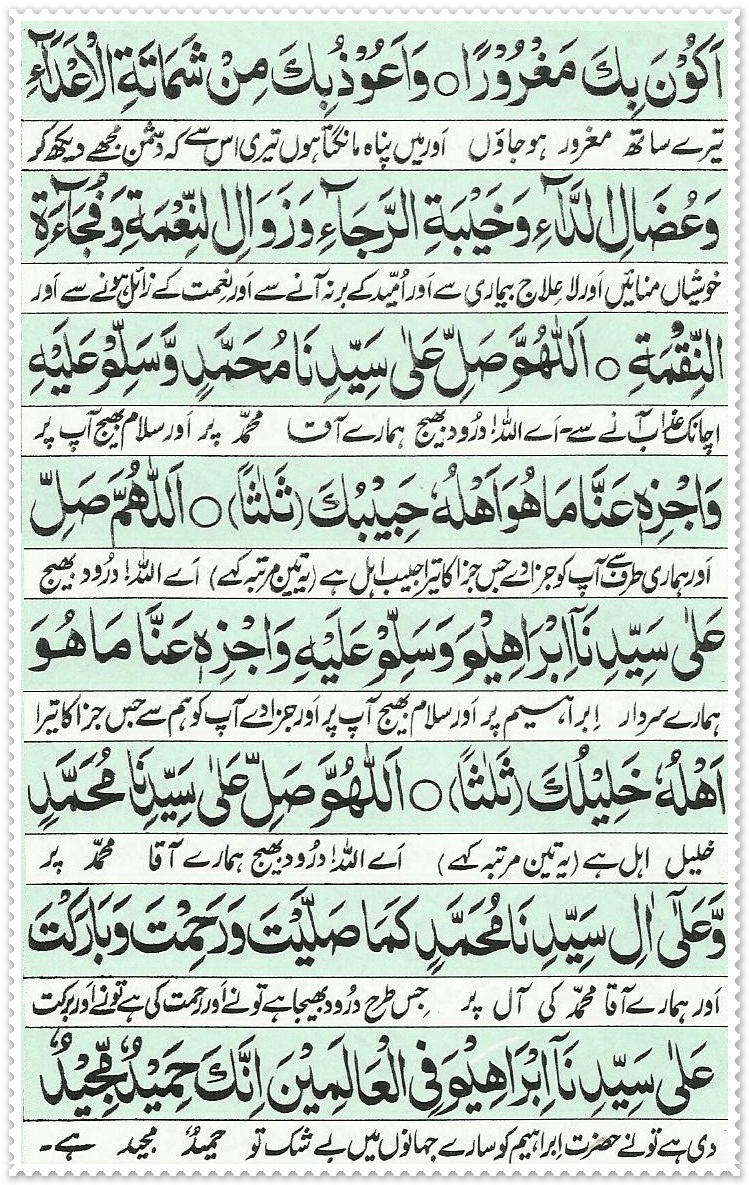 اَكُوْنَ بِكَ مَغْرُوْرًا ○ وَاَعُوْذُ بِكَ مِنْ شَمَاتَةِ الْاَعْدَآءِ
تیرے ساتھ مغرور ہو جاؤں اور میں پناہ مانگتا ہوں تیری اس سے کہ دشمن مجھے دیکھ کر
وَعُضَالِ الدَّآءِ وَخَيْبَةِ الرَّجَآءِ وَزَوَالِ النِّعْمَةِ وَفُجَآءَةِ
خوشیاں منائیں اور لا علاج بیماری سے اور اُمید کے بر نہ آنے سے اور نعمت کے زائل ہونے سے اور
النِّقْمَةِ ○ اَللّٰهُمَّ صَلِّ عَلٰى سَيِّدِنَا مُحَمَّدٍ وَّسَلِّمْ عَلَيْهِ
اچانک عذاب آنے سے۔ اے اللہ! درود بھیج ہمارے آقا محمدؐ پر اور سلام بھیج آپ پر
وَاجْزِهٖ عَنَّا مَا هُوَ اَهْلُهٗ حَبِيْبُكَ (ثَلٰثًا) ○ اَللّٰهُمَّ صَلِّ
اور ہماری طرف سے آپ کو جزا دے جس جزا کا تیرا حبیب اہل ہے (یہ تین مرتبہ کہے) اے اللہ! درود بھیج
عَلٰى سَيِّدِنَآ اِبْرَاهِيْمَ وَسَلِّمْ عَلَيْهِ وَاجْزِهٖ عَنَّا مَا هُوَ
ہمارے سردار ابراہیم پر اور سلام بھیج آپ پر اور جزا دے آپ کو ہم سے جس جزا کا تیرا
اَهْلُهٗ خَلِيْلُكَ (ثَلٰثًا) ○ اَللّٰهُمَّ صَلِّ عَلٰى سَيِّدِنَا مُحَمَّدٍ
خلیل اہل ہے (یہ تین مرتبہ کہے) اے اللہ! درود بھیج ہمارے آقا محمدؐ پر
وَّعَلٰٓى اٰلِ سَيِّدِنَا مُحَمَّدٍ كَمَا صَلَّيْتَ وَرَحِمْتَ وَبَارَكْتَ
اور ہمارے آقا محمدؐ کی آل پر جس طرح درود بھیجا ہے تو نے اور رحمت کی ہے تو نے اور برکت
عَلٰى سَيِّدِنَآ اِبْرَاهِيْمَ فِى الْعَالَمِيْنَ اِنَّكَ حَمِيْدٌ مَّجِيْدٌ
دی ہے تو نے حضرت ابراہیم کو سارے جہانوں میں بے شک تو حمیدٌ مجید ہے۔